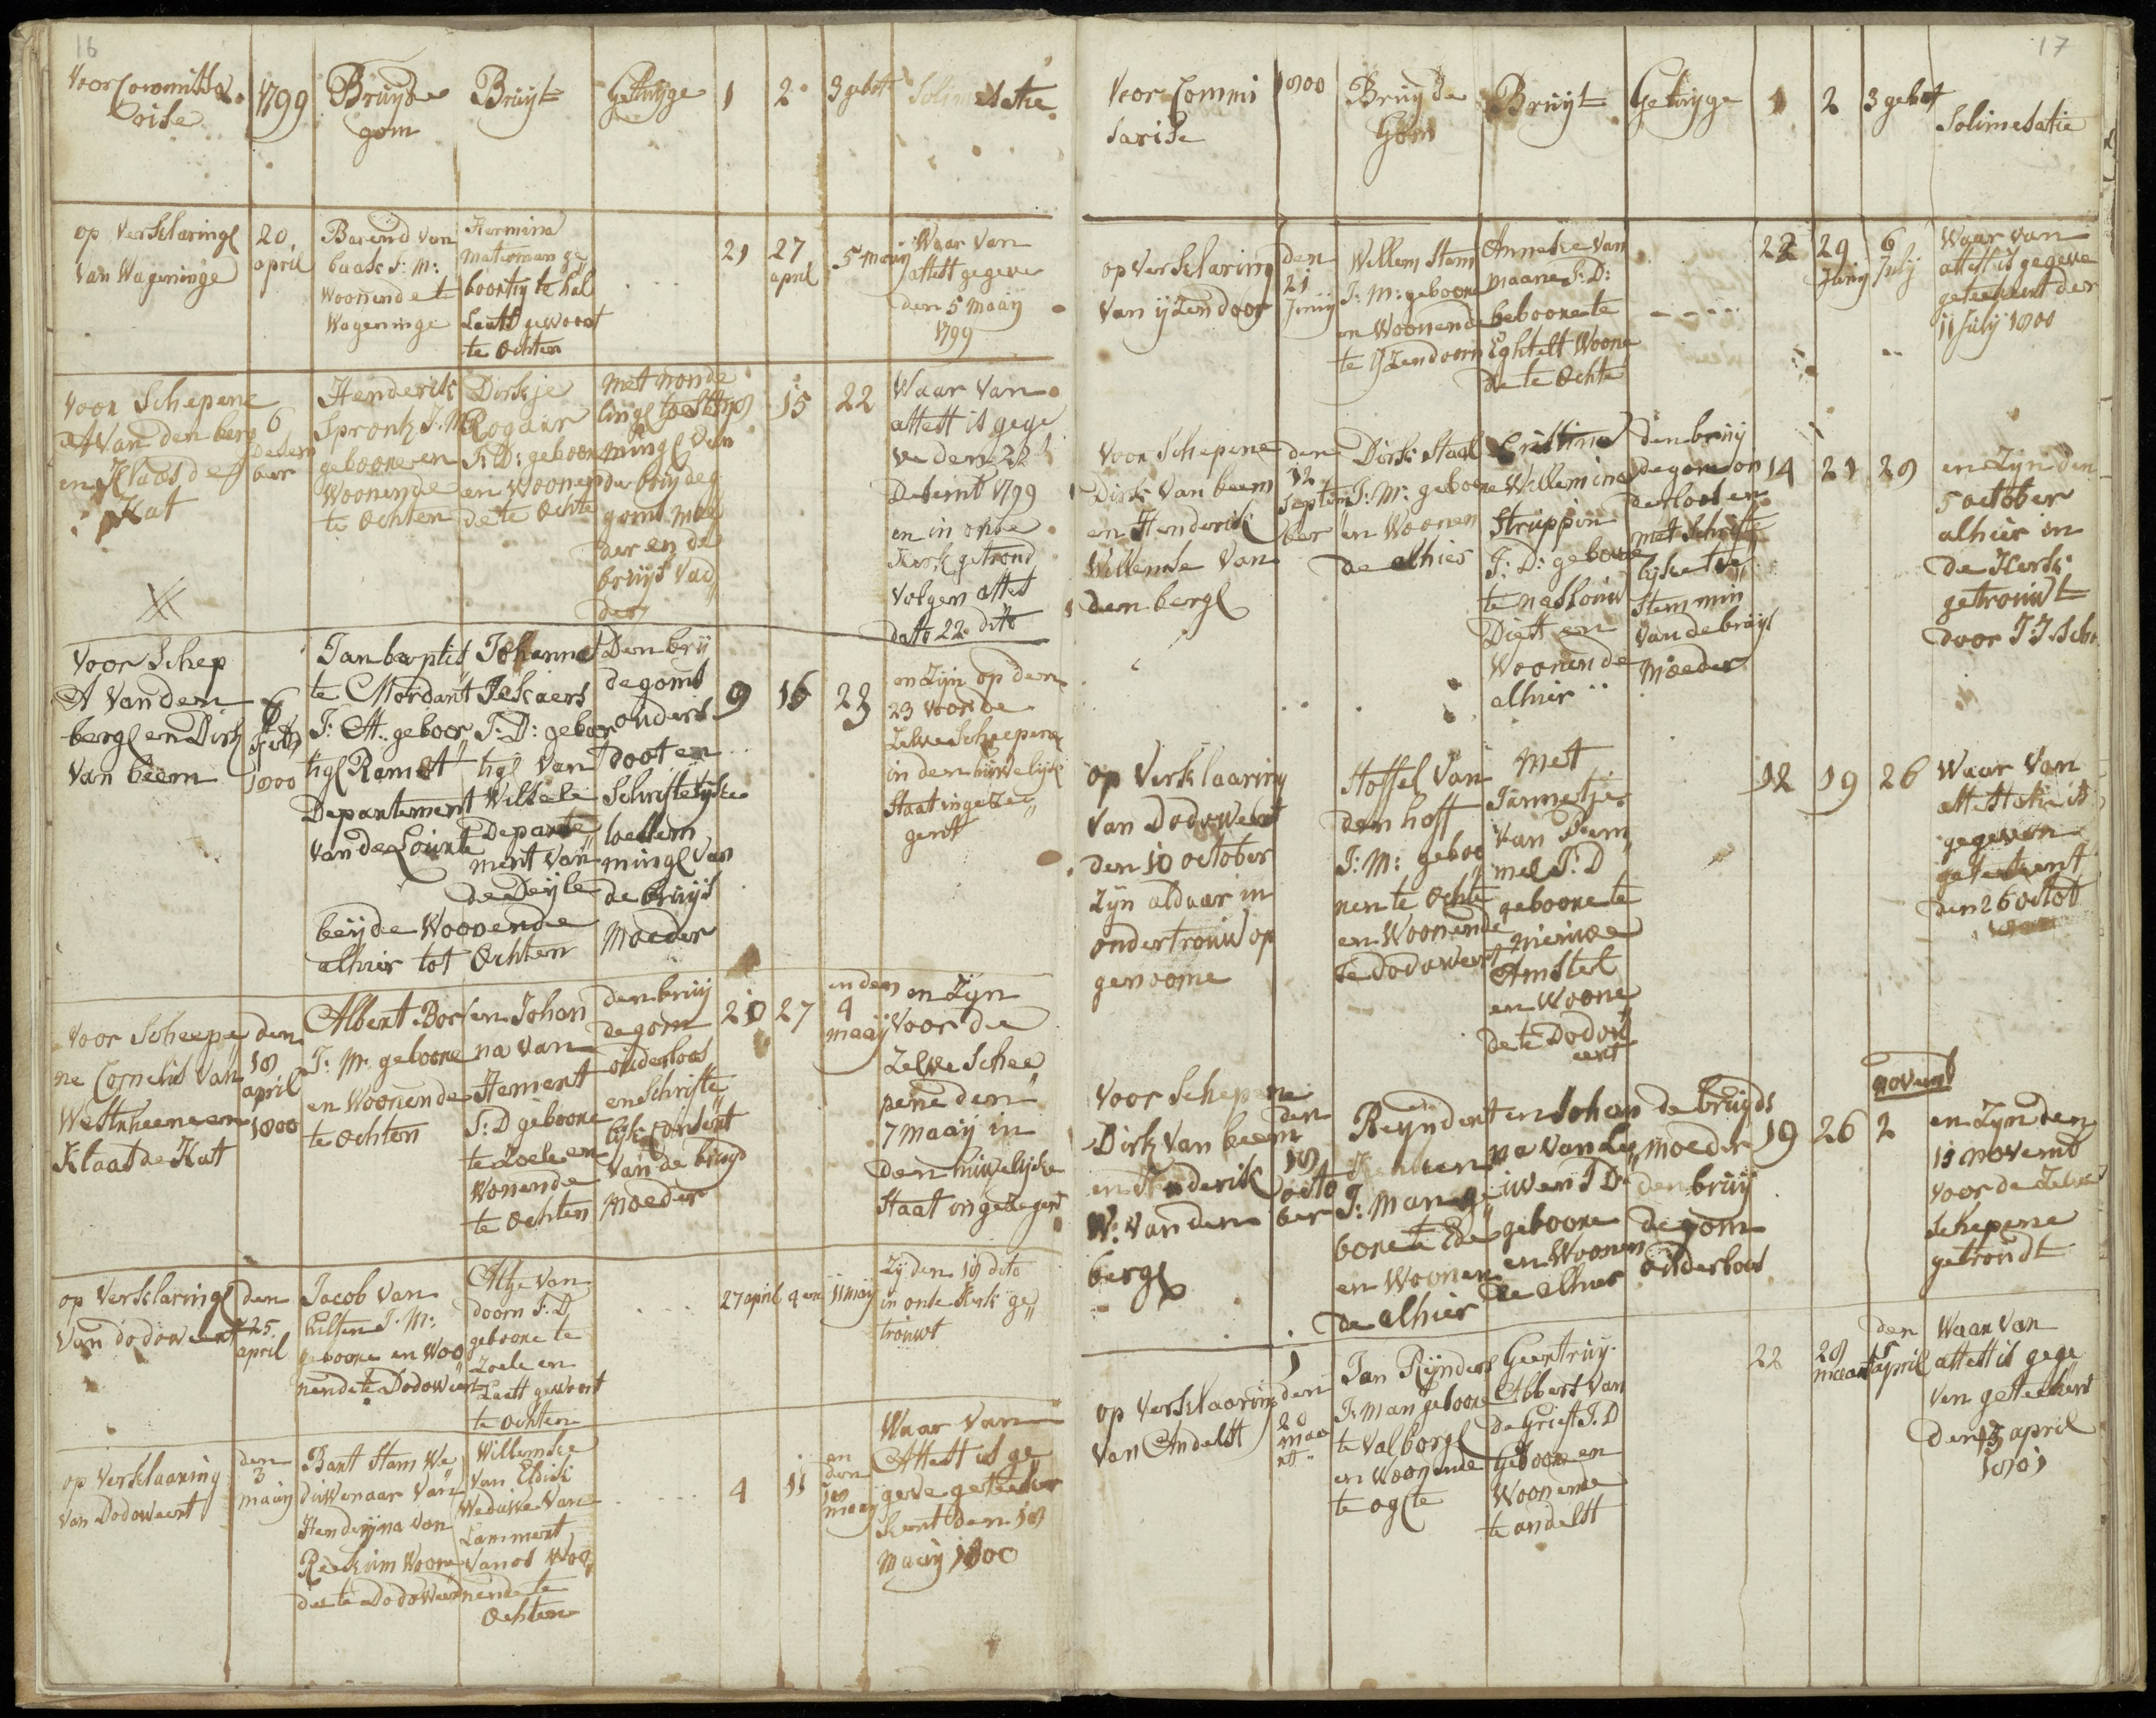 16
Voor Committa
1799
Bruyde
Bruyt
Getuyge
1
2
3 gebot
Solimesatie
Corise
gom
op Verklaring
van Wageninge
20
april
Barend van
baak J: M:
Woonende t
Wageninge
Hermina
Materman ge
boortig te Hel
Laatst gewoont
te Ochten
21
27
april
5 maaij
Waar van
attest gegeve
den 5 maaij
1799
Voor Schepene
A van den berg
en Klaas de
Kat
6
Decem
ber
Henderik
Spronk J. M
geboore en
Woonende
te Ochten
Dirkje
Rogaar
J: D: geboore
en Woonen
de te Ochte
met monde
linge toestem
minge van
der bruydeg
goms moe
der en de
bruijs vad
der
15
22
Waar van
attest is gege
ve den 22
Decemb 1799
en in onse
Kerk getrond
volgens attest
dato 22 dito
Voor Schep
A van den
berg en Dirk
van beem
6
Feb
1800
Jan baptis
te Mordant
J: M: geboor
tig Ramet
Departement
van de Lourte
Johanna
Jekaers
J: D: geboor
tig van
Wilsele
Departe
ment van
de Deyle
beijde Woonende
alhier tot Ochten
Den brij
degoms
ouders
doot en
Schriftelyke
toestem
minge van
de bruijs
Moeder
9
16
23
en Zijn op den
23 voor de
Zelve Scheepene
in den huwelijk
Staat ingezee
gent
Voor Scheepe
ne Cornelis van
Westrheenen en
Klaas de Kat
den
18
april
1800
Albert Bor
J: M: geboore
en Woonende
te Ochten
en Johan
na van
Hement
J: D geboore
te Zoelen en
Wonende
te Ochten
den bruij
degom
ouderloos
en Schrifte
lijke Consent
van de bruyd
Moeder
20
27
en den
4
maaij
en Zijn
voor de
Zelve Schee
pene den
7 maaij in
den huwelijke
Staat ingezegent
op Verklaring
van dodoweert
den
25
april
Jacob van
hilten J. M:
geboore en Woo
nende te Dodoweert
Altje van
doorn J. D
geboore te
Zoele en
Laatst gewoont
te Ochten
27 april
4 en
11 maij
Zijden 18 dito
in onse Kerk ge
trouwt
op Verklaaring
van Dodoweert
den
3
maaij
Bart Stam We
duwenaar van
Henderijna van
Reekum Woone
de te Dodoweert
Willemke
van Eldik
Weduwe van
Lammert
van os Woo
nende te
Ochten
4
11
en
den
18
maaij
Waar van
Attest is ge
geve geteeke
kent den 18
Maaij 1800
17
Voor Commi
1800
Bruyde
Bruyt
Getuyge
1
2
3 gebot
Solimesatie
sarise
Gom
op Verklaring
van ijzendoor
den
21
Junij
Willem Stam
J: M: geboore
en Woonende
te IJzendoorn
Anneke van
maane J: D:
geboore te
Eghtelt Woone
de te Ochte
22
29
Junij
6
July
Waar van
attest is gegeve
geteekent den
11 July 1800
Voor Schepene
Dirk van beem
en Henderik
Willemse van
den berg
den
12
Septem
ber
Dirk Staal
J: M: geboore
en Woonen
de alhier
Cristina
Willemina
Struppin
J: D: geboore
te naslouw
Diett en
Woonende
alhier
den bruij
degom on
derloos en
met Schrifte
lijke toe
stemmin
van de bruijs
Moeder
14
21
28
en Zijn den
5 october
alhier in
de Kerk
getrouwt
door J J Sch
op Verklaaring
van Dodoweert
den 10 october
Zijn aldaar in
ondertrouw op
genoome
Stoffel van
den hoff
J: M: geboo
ren te Ochte
en Woonende
te dodoweert
Met
Jannetje
van Dem
mel J: D
geboore te
nieuwe
Amstel
en Woone
de te Dodow
eert
12
19
26
Waar van
attestatie is
gegeven
geteekent
den 26 octob
Voor Schepene
Dirk van beem
en Henderik
W: van den
berg
den
18
octo
ber
Reyndert
J: Man ge
boore te Ede
en Woonen
de alhier
en Johan
na van Le
uwen J D
geboore
en Woonen
de alhier
de bruijds
Moeder
den bruij
degom
ouderloos
19
26
novemb
2
en Zijn den
11 novemb
voor de Zelve
Schepene
getrondt
op Verklaaring
van Andelst
den
20
maa
rt
Jan Reijnders
J: Man geboore
te Valborg
en Woonende
te ogte
Geertruij
Abbers van
De Grieft J. D
Geboore en
Woonende
te andelst
22
29
maart
den
5
april
Waar van
attest is gege
ven geteekent
den 5 april
1801